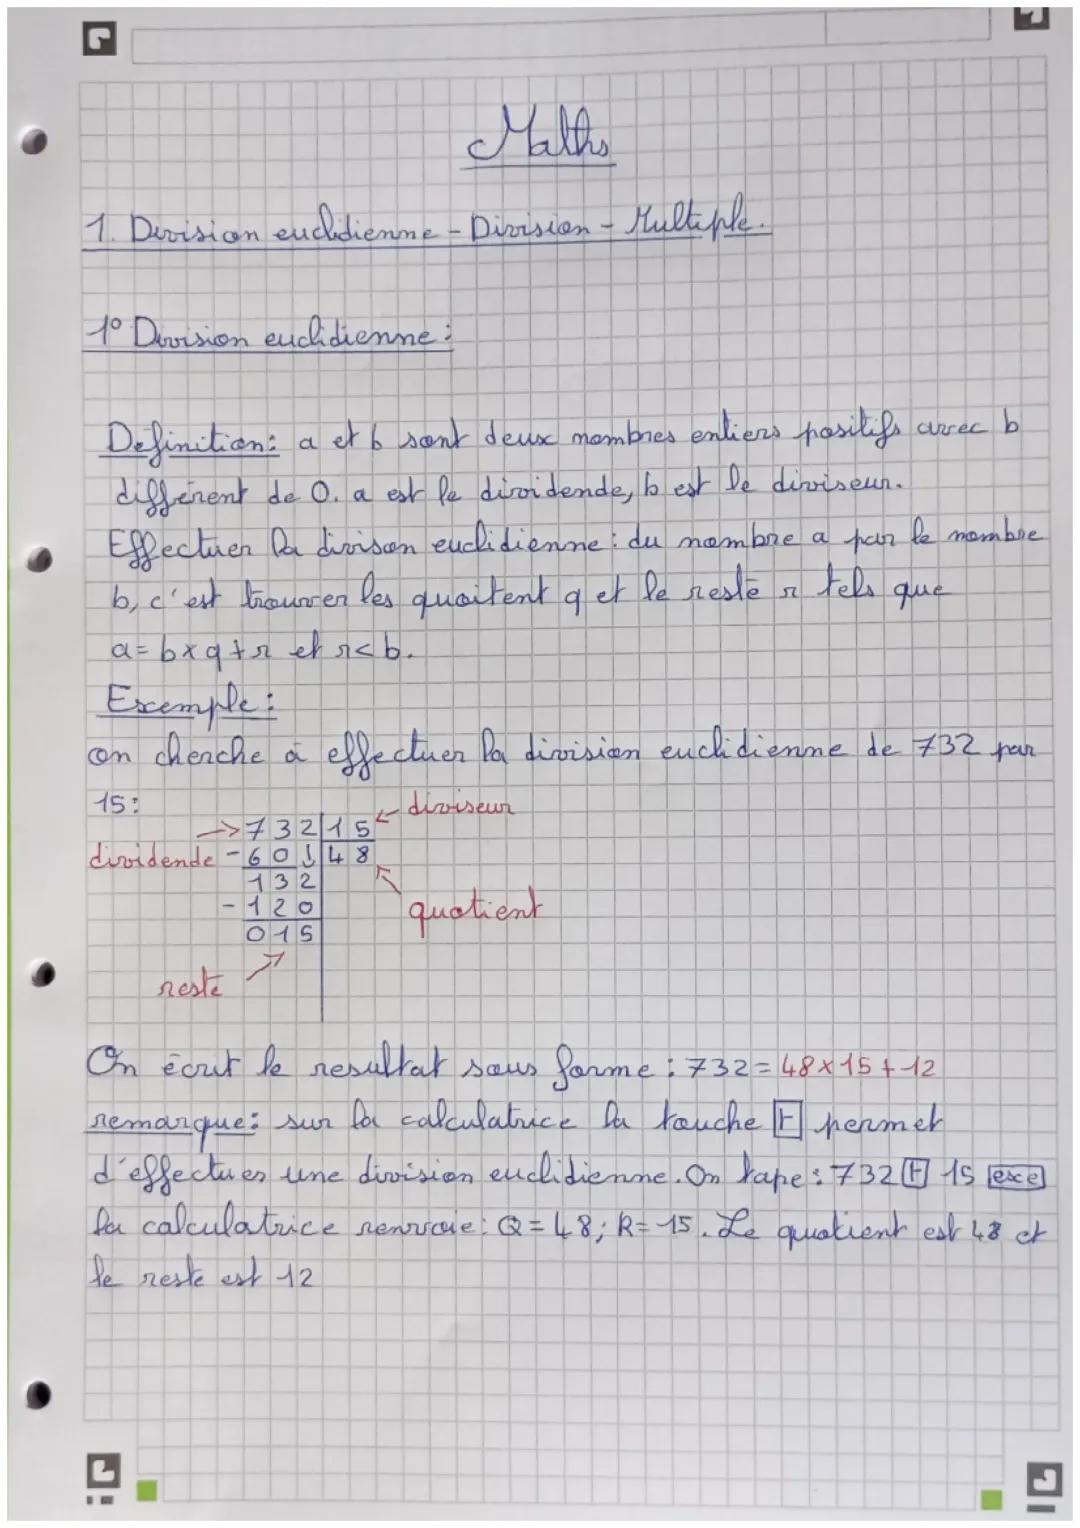 Maths
1. Division euclidienne - Division - Multiple.
1° Division euclidienne :
Definition: a et b sont deux nombres entiers positifs avec b
différent de 0. a est le dividende, b est le diviseur.
Effectuer la divison euclidienne : du nombre a par le nombre
b, c'est trouver les quoitent q et le reste r tels que
a = b x q + r et r < b.
Exemple :
on cherche à effectuer la division euclidienne de 732 par
15 :
diviseur
732 15
dividende - 60 48
132
- 120
quotient
015
reste
On écrit le resultat sous forme : 732 = 48 x 15 + 12
remarque : sur la calculatrice la touche ⊢ permet
d'effectuer une division euclidienne. On tape : 732 ⊢ 15 exe
la calculatrice renvoie : Q = 48 ; R = 15. Le quotient est 48 et
le reste est 12